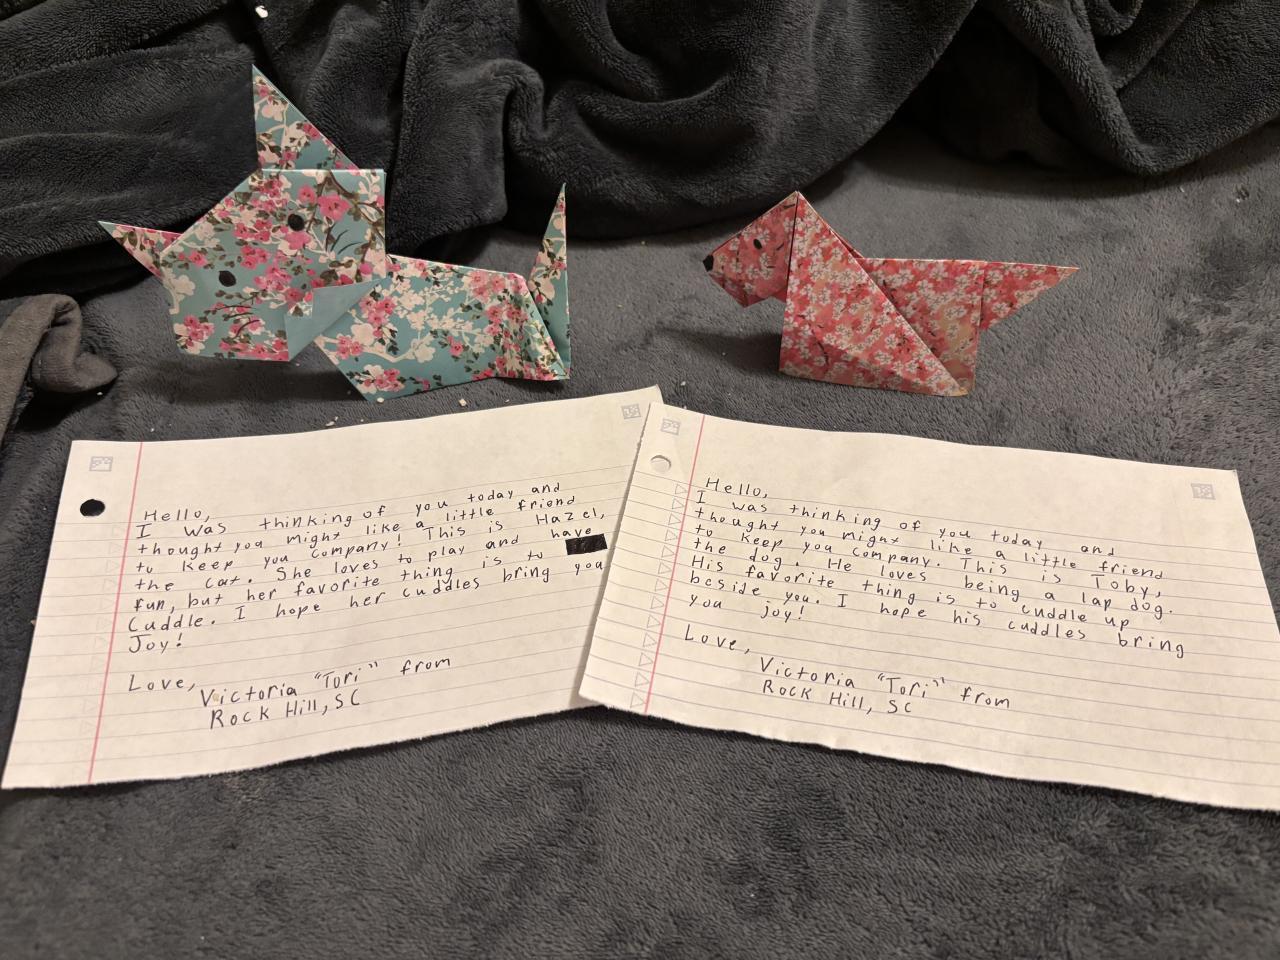 Hello,
I was thinking of you today and
thought you might like a little friend
to keep you company! This is Hazel,
the cat. She loves to play and have
fun, but her favorite thing is to
cuddle. I hope her cuddles bring you
Joy!
Love,
Victoria "Tori" from
Rock Hill, SC
Hello,
I was thinking of you today and
thought you might like a little friend
to keep you company. This is Toby,
the dog. He loves being a lap dog.
His favorite thing is to cuddle up
beside you. I hope his cuddles bring
you joy!
Love,
Victoria "Tori" from
Rock Hill, SC